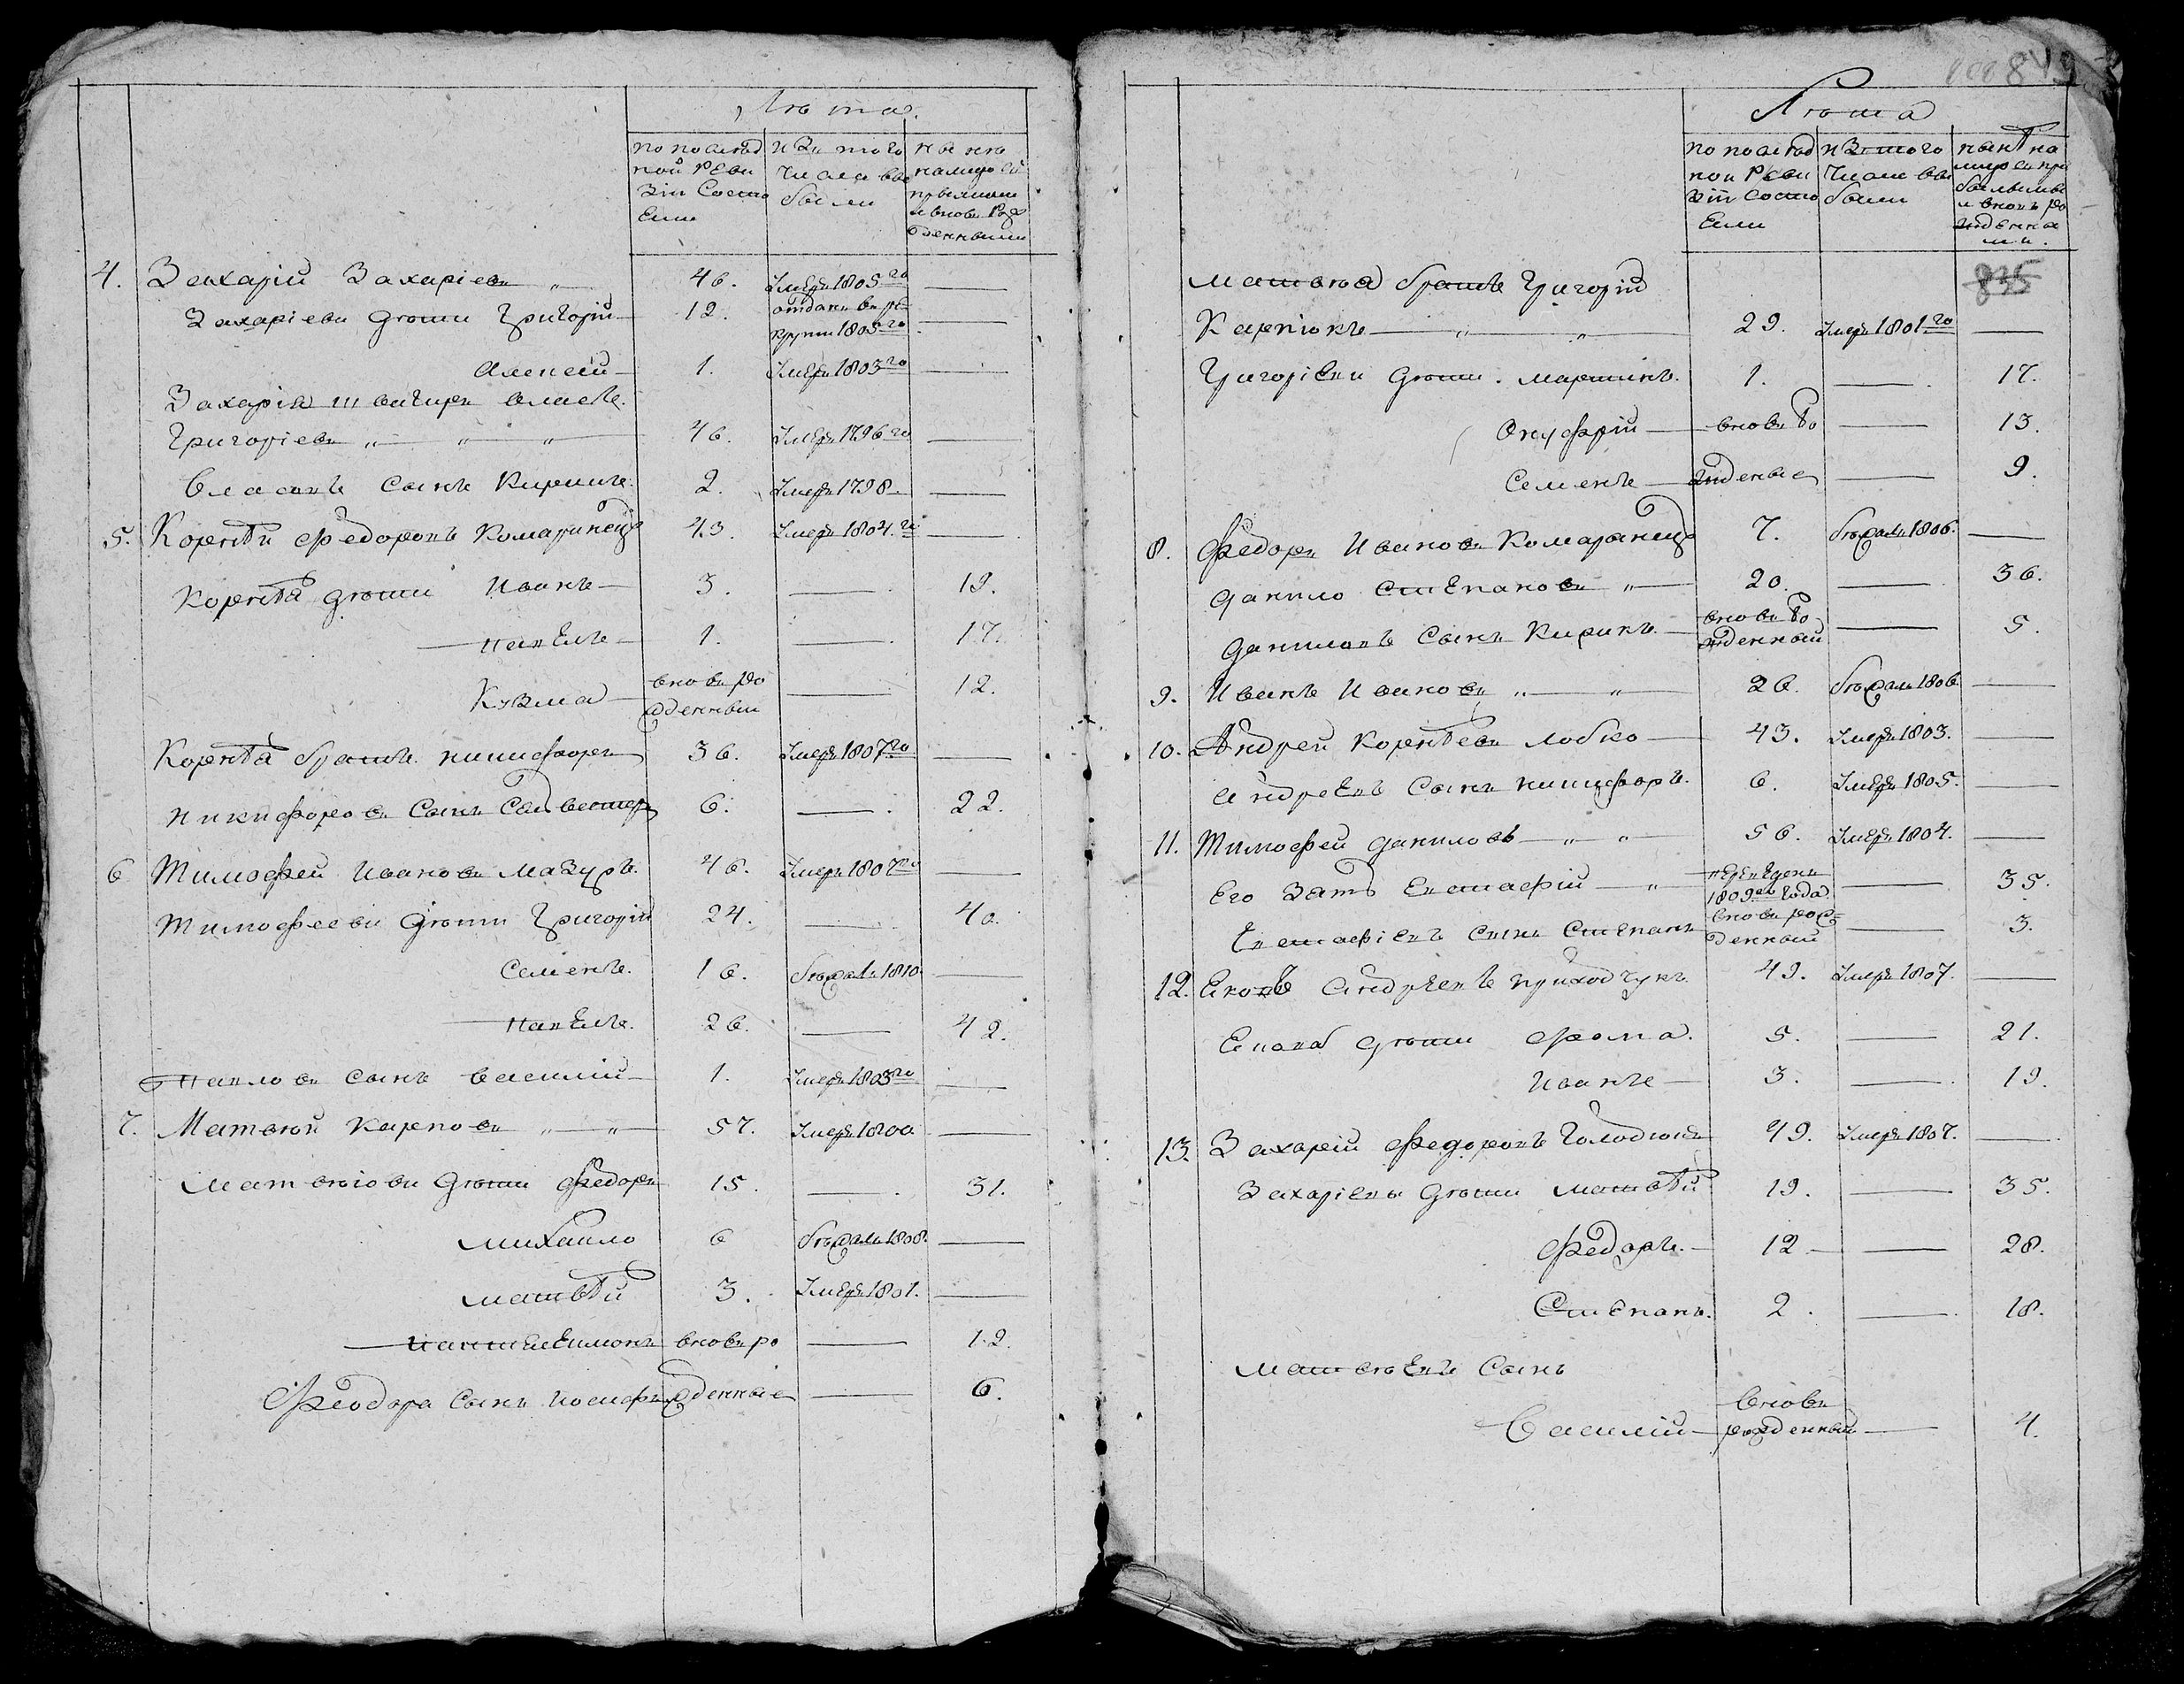 Лѣта.
по послѣд из того нынѣ
ной реви числа вы на лицо съ
зіи состо были прбылыми
яли и вновь рож
денными
4. Захарій Захаріевъ „ 46. Умеръ 1805го —
Захаріевы дѣти Григорій — 12. отданъ в ре
круты 1805го —
Алексей — 1. Умеръ 1803го —
Захарія швагиръ Власъ
Григоріевъ „ „ „ 46. Умеръ 1796го —
Власовъ сынъ Кирила. 2. Умеръ 1798. —
5. Корнѣй Федоровъ Комаринецъ 43. Умеръ 1804.го —
Корнѣя дѣти Иванъ — 3. — 19.
Павелъ — 1. — 17.
Кузма — вновь ро
жденный — 12.
Корнѣя братъ Никифоръ 36. Умеръ 1807го —
Никифоровъ сынъ Сильвестръ 6. — 22.
6 Тимофей Ивановъ Мазуръ. 46. Умеръ 1807го —
Тимофеевы дѣти Григорій 24. — 40.
Семенъ. 16. бѣжалъ 1810 —
Павелъ. 26. — 42.
Павловъ сынъ Василий — 1. Умеръ 1803го —
7. Матвѣй Карповъ „ „ 57. Умеръ 1800 —
Матвѣіовы дѣти Федоръ 15. — 31.
Михайло 6 бѣжалъ 1808. —
Матвѣй 3. Умеръ 1801. —
Пантелеимонъ вновь ро — 12.
Феодора сынъ Иосифъ жденные — 6.
849
Лѣта
по послѣд из того нынѣ на
ной реви числа вы лицо съ при
зіи состо были былыми
яли и вновь ро
жденны
ми.
835
Матвѣя братъ Григорій
Карпюкъ — „ „ 29. Умеръ 1801го —
Григоріевы дѣти. Мартинъ. 1. — 17.
Онуфрій — вновь ро — 13.
Семенъ — жденые — 9.
8. Федоръ Ивановъ Комаранецъ 7. бѣжалъ 1806. —
Данило Степановъ „ 20. — 36.
Даниловъ сынъ Кирикъ — вновь ро
жденный — 5.
9. Иванъ Ивановъ „ „ 26. бѣжалъ 1806. —
10. Андрей Корнѣевъ Лобко — 43. Умеръ 1803. —
Андреевъ сынъ Никифоръ. 6. Умеръ 1805. —
11. Тимофей Даниловъ — „ „ 56. Умеръ 1804. —
Его зять Евстафій — „
1809го года — 35.
Евстафіевъ сынъ Степанъ вновь рож
денный — 3.
12. Яковъ Андреевъ Приходчукъ 49. Умеръ 1807. —
Якова дѣти Фома. 5. — 21.
Иванъ — 3. — 19.
13. Захарій Федоровъ Голодюкъ 49. Умеръ 1807. —
Захаріевы дѣти Матвѣй 19. — 35.
Федоръ. — 12 — — 28.
Степанъ. 2. — 18.
Матвѣевъ сынъ
Василій — вновь
рожденный — 4.